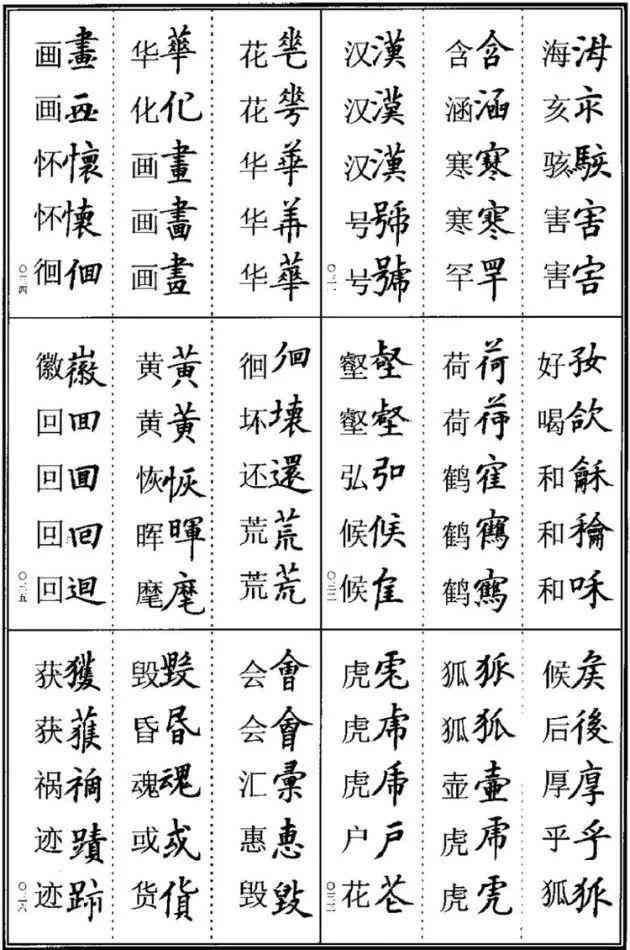 海𣳠亥亥骇駭害害害害
含含涵涵寒寒寒寒罕罕
汉漢汉漢汉漢号號号號
〇二一
好㝀喝欱和龢和龢和咊
荷荷荷荷鹤隺鹤鶴鹤鶴
壑壑壑壑弘弘候候候隹
〇二二
候矦后後厚厚乎乎狐狐
狐狐狐狐壶壷虎虎虎虎
虎虎虎虎虎虎户戶花芲
〇二三
花花花蕚华華华華华華
华華化化画畫画畫画畫
画畫画畫怀懷怀懐徊佪
〇二四
徊佪坏壊还還荒荒荒荒
黄黃黄黃恢恢晖暉麾麾
徽徽回囬回囬回回回迴
〇二五
会會会會汇彙惠惠毁毀
毁毀昏昬魂魂或或货貨
获獲获蒦祸禍迹蹟迹跡
〇二六